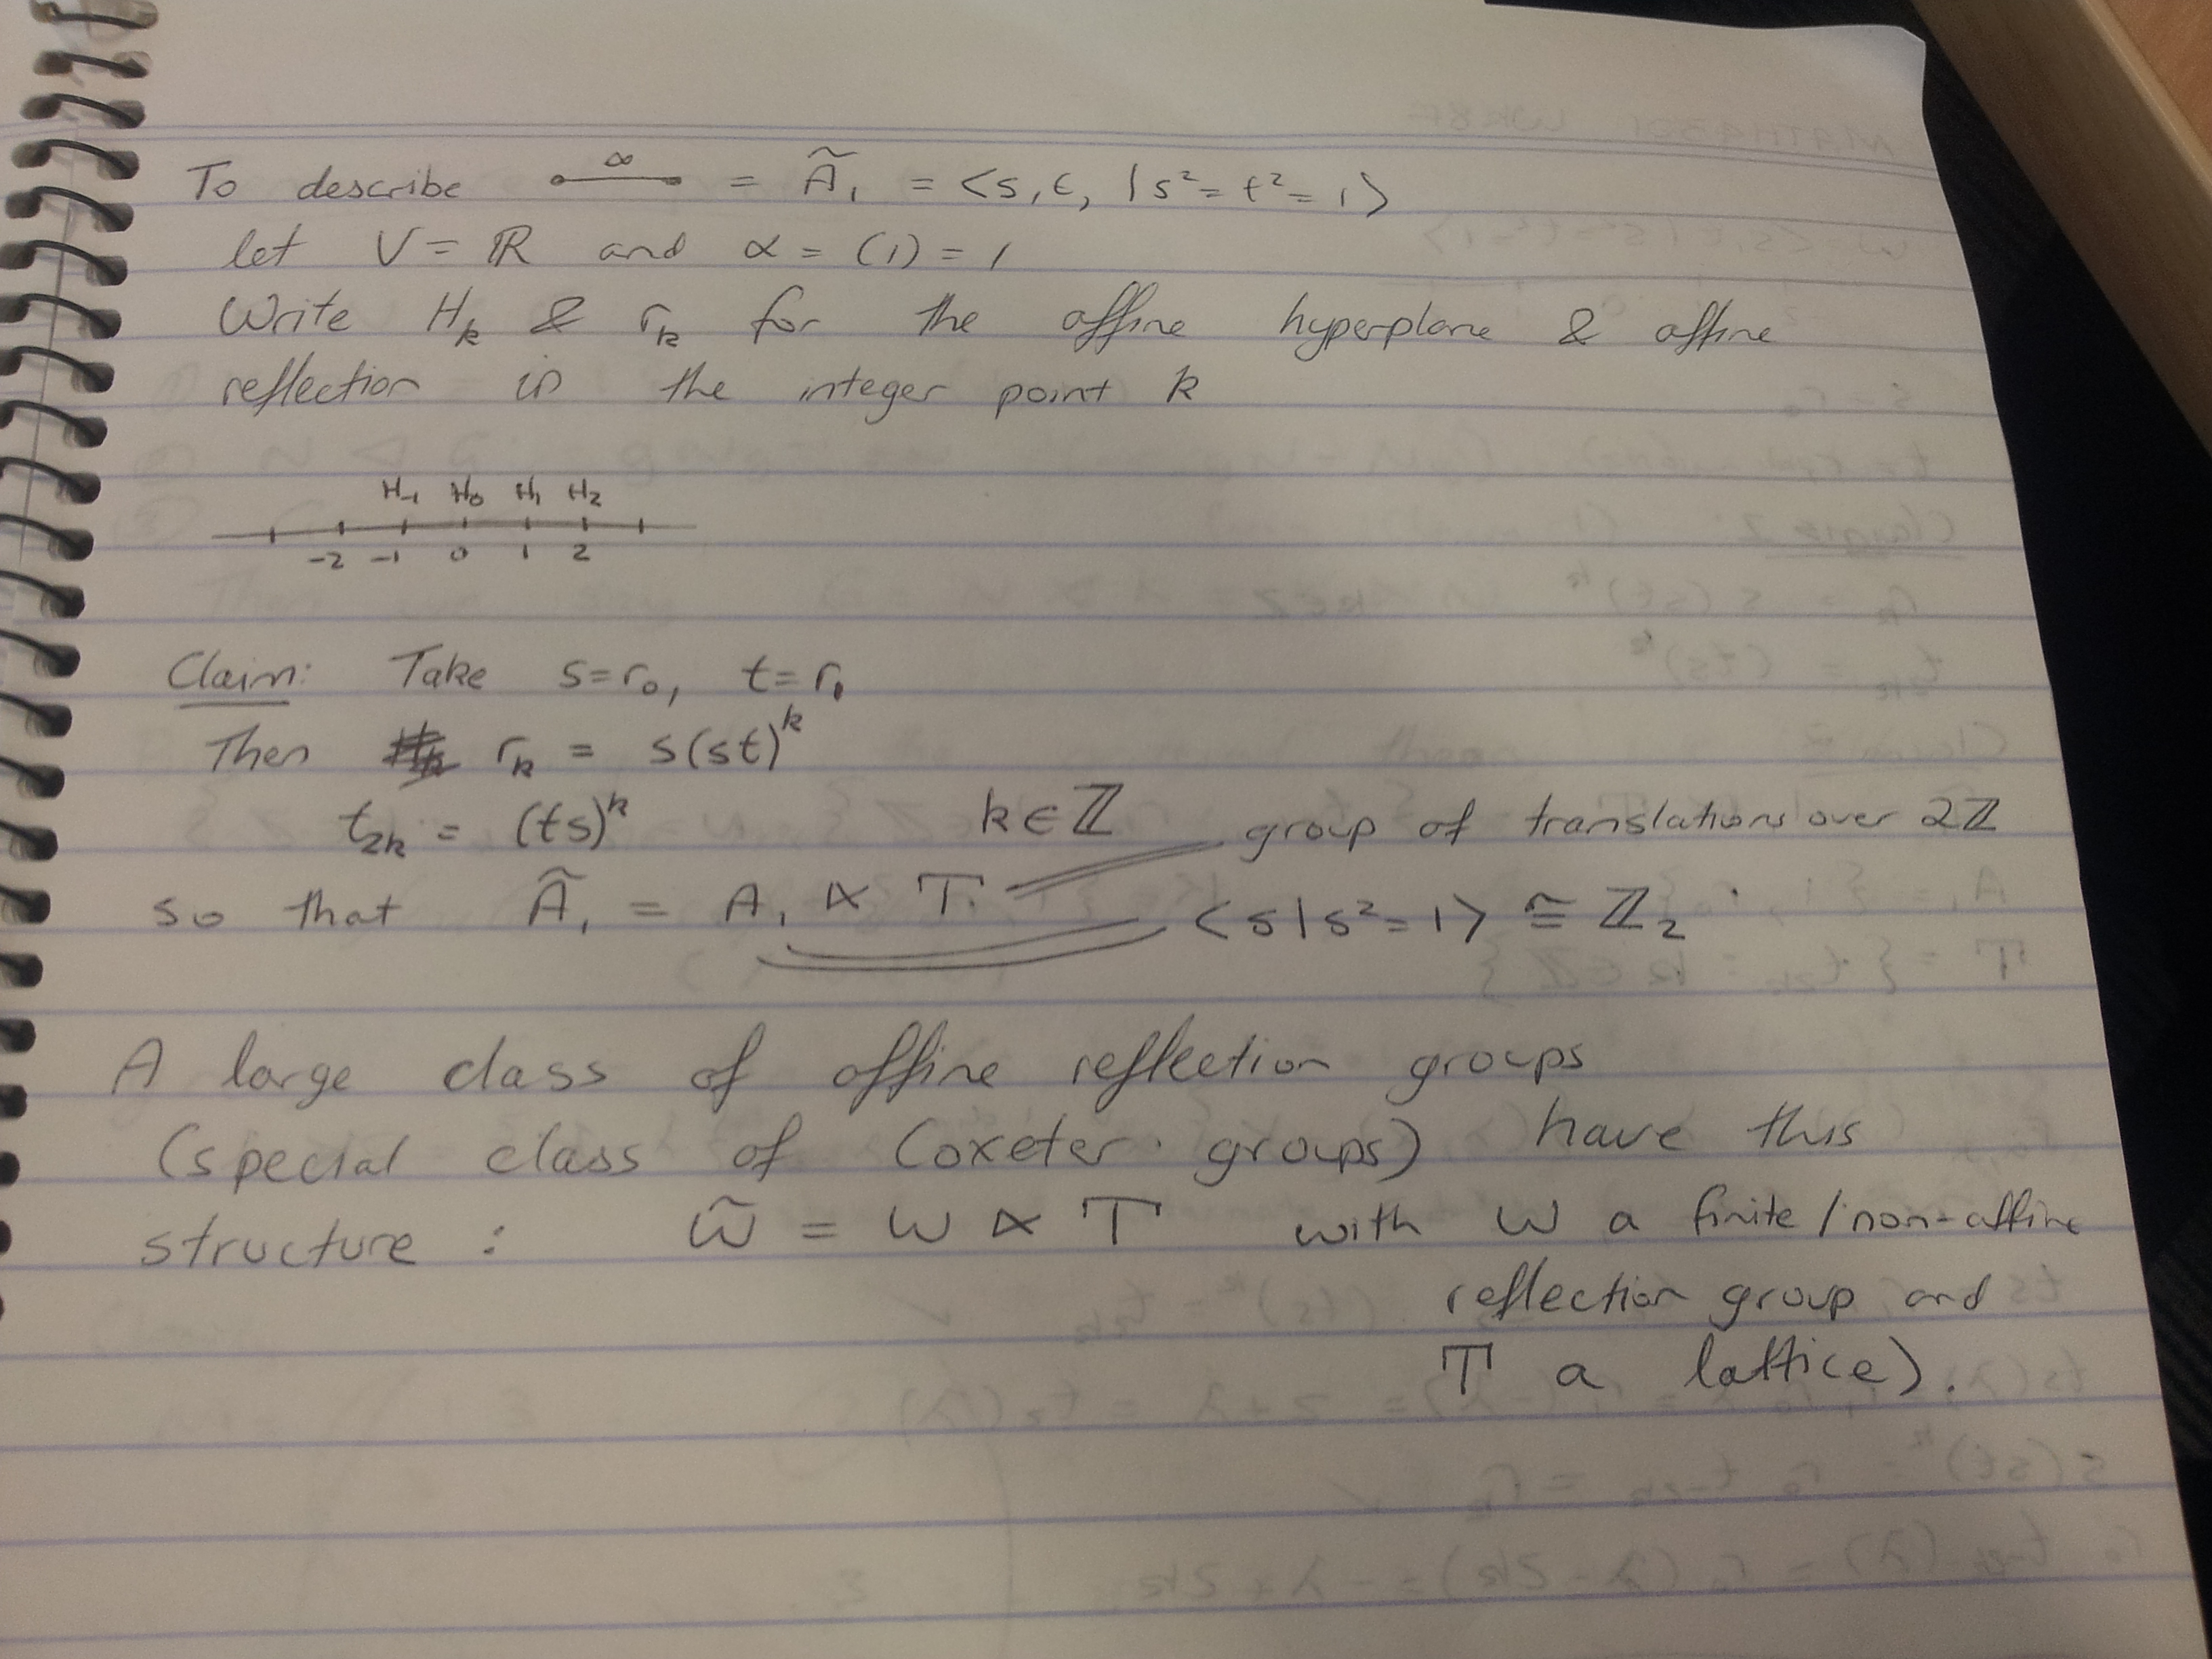 To describe •—∞—• = Ã₁ = <s, t, | s² = t² = 1>
let V = ℝ and α = (1) = 1
Write Hₖ & rₖ for the affine hyperplane & affine
reflection in the integer point k
H₋₁ H₀ H₁ H₂
-2 -1 0 1 2
Claim: Take s=r₀, t=r₁
Then rₖ = s(st)ᵏ
t₂ₖ = (ts)ᵏ k∈ℤ group of translations over 2ℤ
so that Ã₁ = A₁ ⋉ T <s|s²=1> ≅ ℤ₂
A large class of affine reflection groups
(special class of Coxeter groups) have this
structure : W̃ = W ⋉ T with W a finite/non-affine
reflection group and
T a lattice).